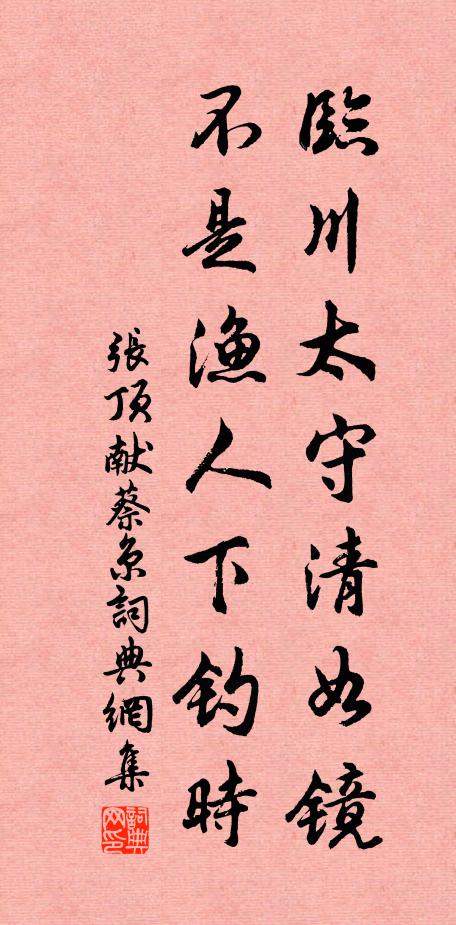 臨川太守清如鏡
不是漁人下釣時
張頂献蔡京詞典網集
詞典网印